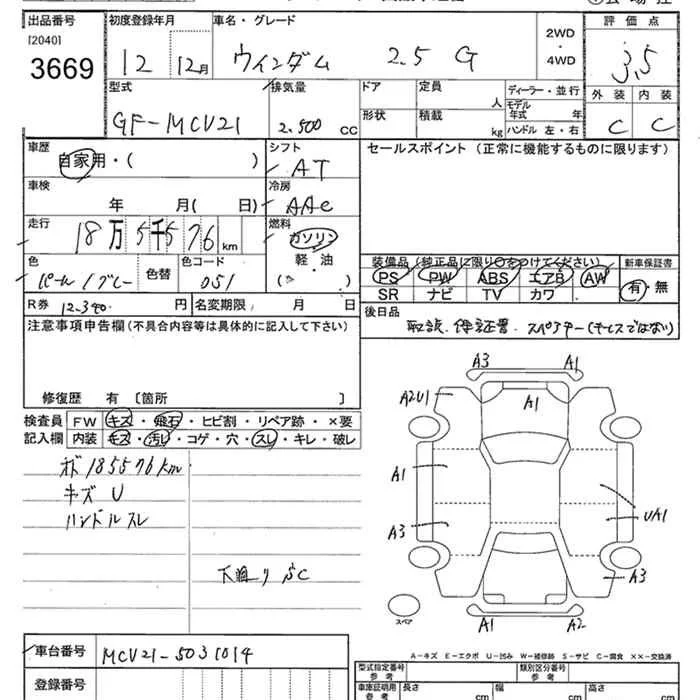 出品番号 初度登録年月 車名・グレード 2WD ・ 4WD 評価点
[2040]
3669 12 12月 ウィンダム 2.5 G 3.5
型式 排気量 ドア 定員 人 ディーラー・並行 外装 内装
GF-MCV21 2.500 CC 形状 積載 kg モデル年式 年 ハンドル 左・右 C C
車歴 シフト セールスポイント(正常に機能するものに限ります)
自家用・( ) AT
車検 冷房
年 月( 日) AAC
走行 燃料
18万5千576km ガソリン
色 色替 色コード 軽・油 装備品(純正品に限り○をつけてください) 新車保証書
パール/グレー 051 ( ) PS PW ABS エアB AW 有・無
SR ナビ TV カワ
R券 12.340 円 名変期限 月 日 後日品
取説.保証書.スペアキー(キーレスではない)
注意事項申告欄(不具合内容等は具体的に記入して下さい)
修復歴 有 [箇所 ]
検査員 FW キズ・飛石・ヒビ割・リペア跡・×要
記入欄 内装 キズ・汚れ・コゲ・穴・スレ・キレ・破レ
オド185576km
キズ U
ハンドルスレ
下廻りSC
A3 A1
A2U1 A1
A1
UA1
A3
A3
スペア
A1 A2
A－キズ E－エクボ U－凹み W－補修跡 S－サビ C－腐食 ××－交換済
車台番号 MCV21-5031014
型式指定番号 参考 類別区分番号 参考
登録番号 車庫証明用 参考 長さ cm 幅 cm 高さ cm